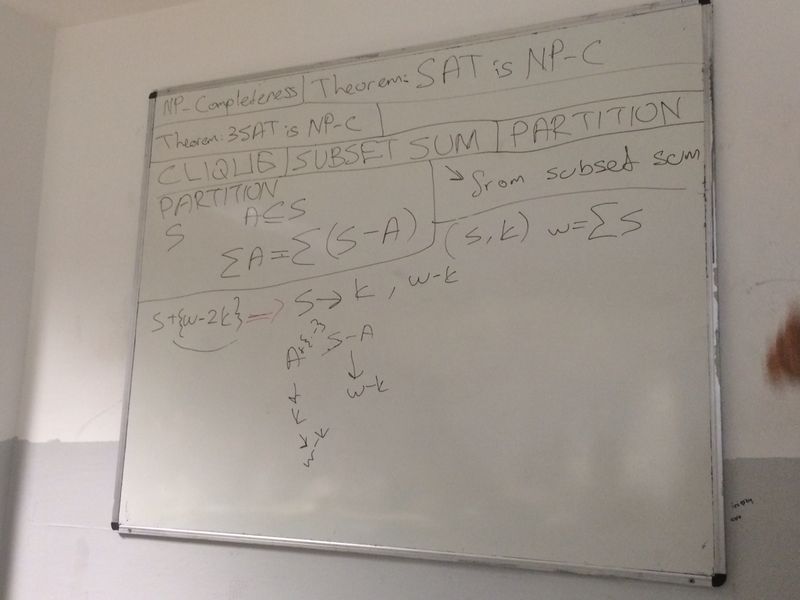 NP-Completeness | Theorem: SAT is NP-C
Theorem: 3SAT is NP-C
CLIQUE | SUBSET SUM | PARTITION
PARTITION
S A⊆S
ΣA=Σ(S-A)
↘ from subset sum
(S,k) w=ΣS
S+{w-2k} => S→k, w-k
S-A
↓
w-k
A
k
w-k